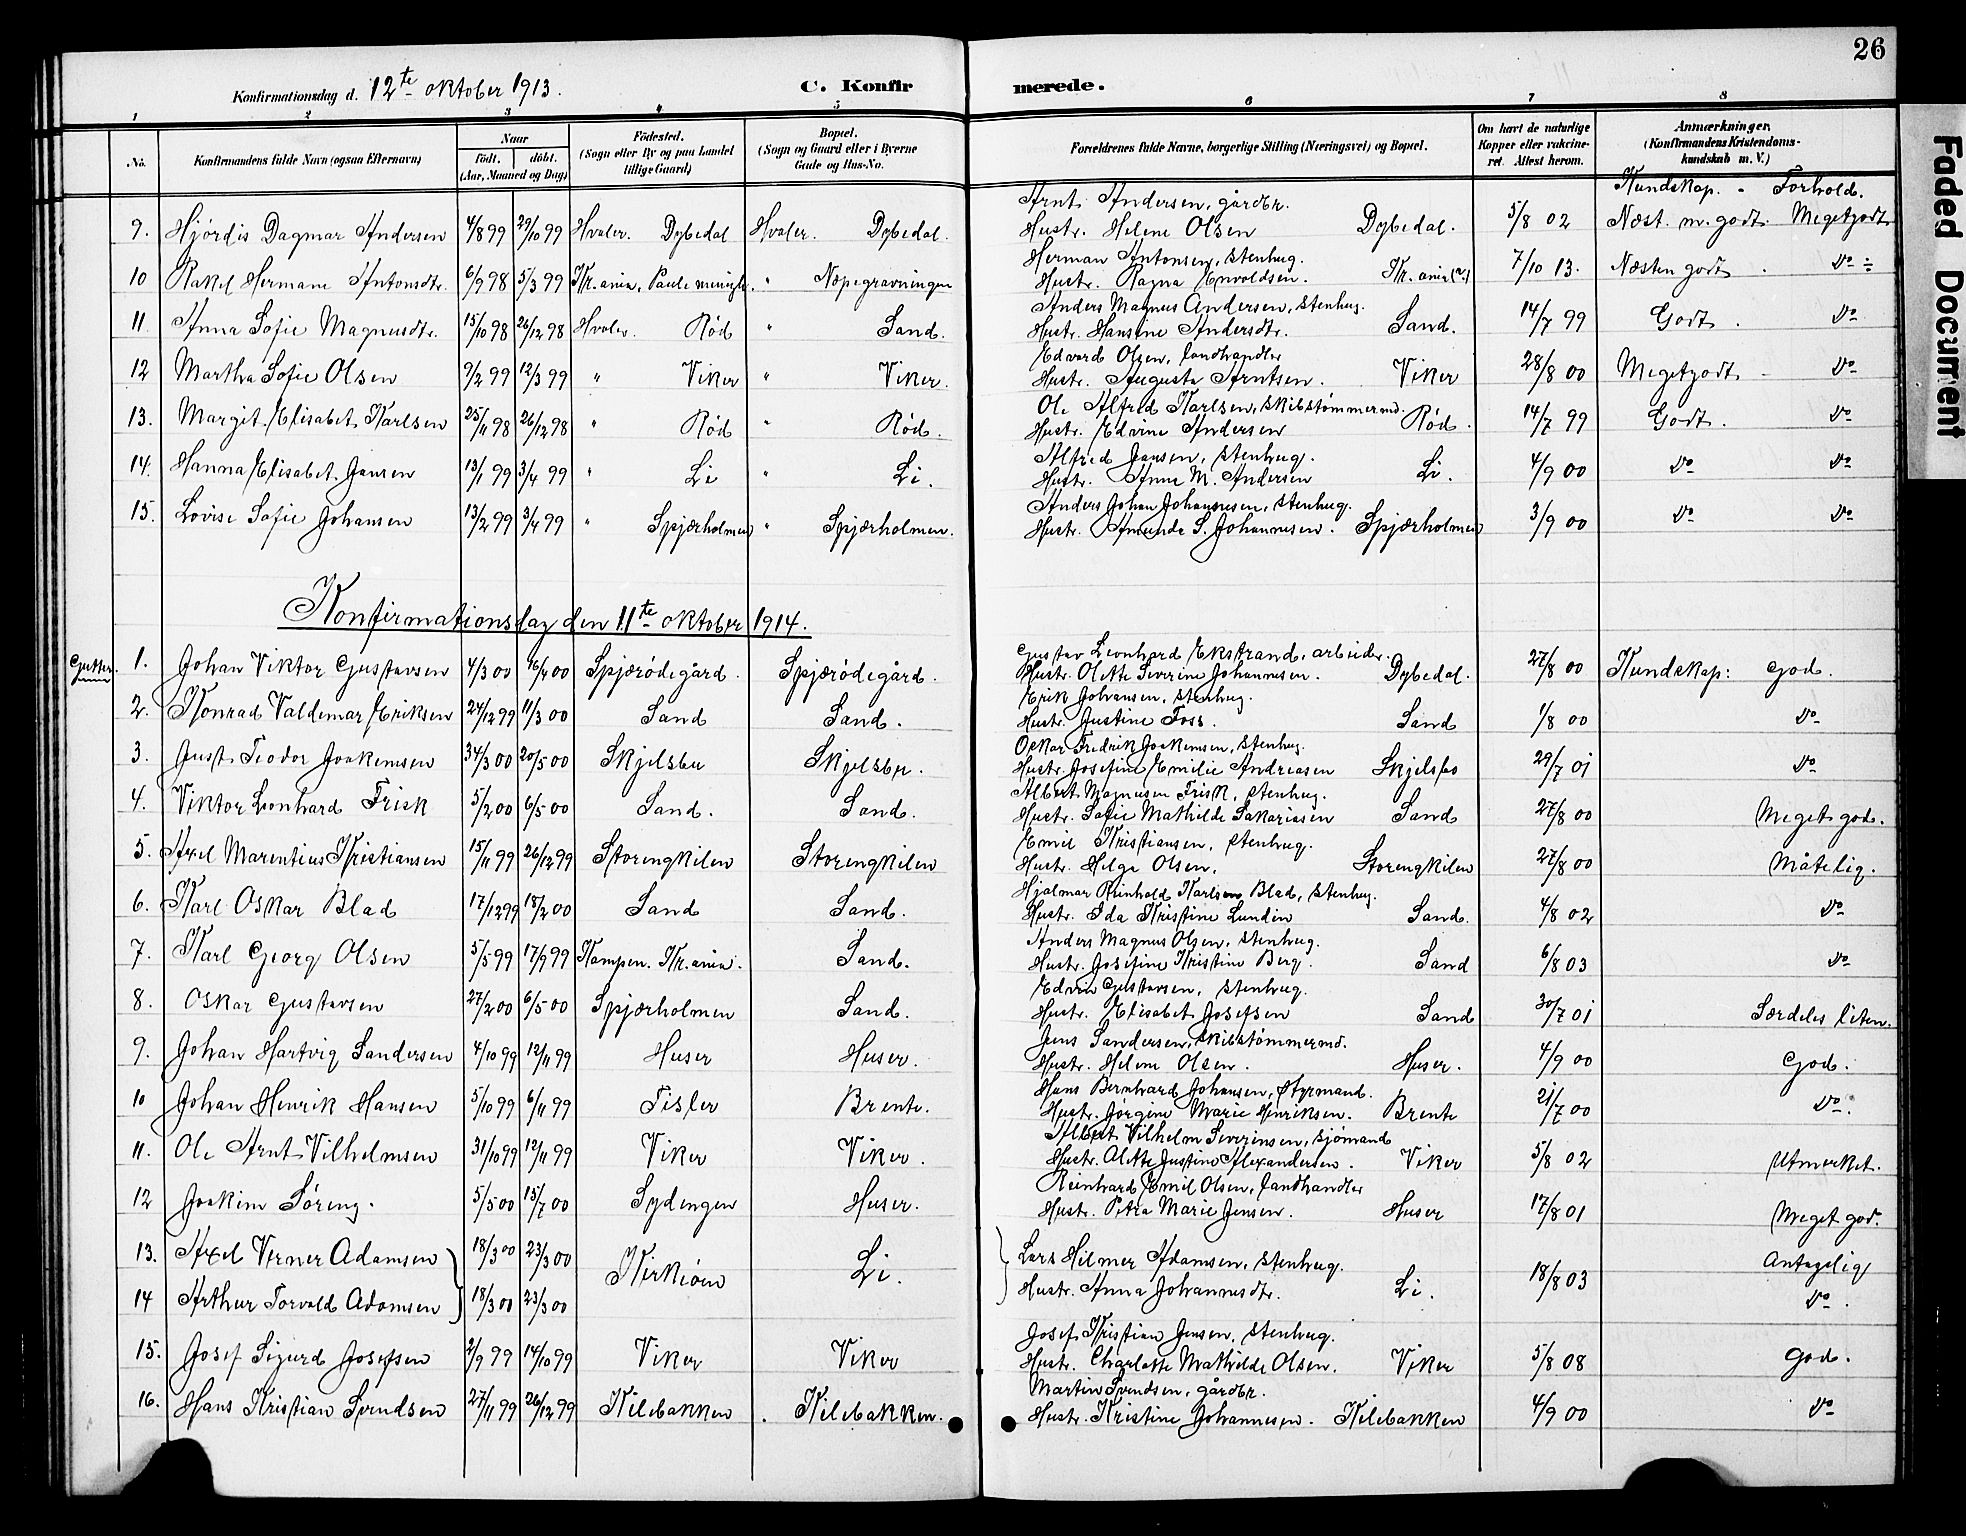 26
Konfirmationsdag d. 12te oktober 1913. C. Konfirmerede.
1 2 3 4 5 6 7 8
No. Konfirmandens fulde Navn (ogsaa Efternavn) Naar født. døbt. (Aar, Maaned og Dag) Födested. (Sogn eller By og paa Landet tillige Gaard) Bopæl. (Sogn og Gaard eller i Byerne Gade og Hus-No. Forældrenes fulde Navne, borgerlige Stilling (Næringsvei) og Bopæl. Om havt de naturlige Kopper eller vakcineret. Attest herom. Anmærkninger. (Konfirmandens Kristendomskundskab m. V.)
Kundskap. - Forhold.
Arnt Andersen, gårdbr.
9. Hjørdis Dagmar Andersen 4/8 99 29/10 99 Hvaler. Dybedal Hvaler. Dybedal. Hustr. Helene Olsen Dybedal. 5/8 02 Næst. m. godt. Megetgodt
Herman Antonsen, stenhug.
10 Rakel Hermane Antonsdtr. 6/9 98 5/3 99 Kr.ania, Paule menigh. " Næpegravningen Hustr. Ragna Envoldsen. Kr.ania(?) 7/10 13. Næsten godt. Do ÷
Anders Magnus Andersen, stenhug.
11. Anna Sofie Magnusdtr. 15/10 98 26/12 98 Hvaler. Rød " Sand. Hustr. Hansine Andersdtr. Sand. 14/7 99 Godt. Do
Edvard Olsen, landhandler
12 Martha Sofie Olsen 9/2 99 12/3 99 " Viker " Viker. Hustr. Augusta Arntsen. Viker 28/8 00 Megetgodt - Do
Ole Alfred Karlsen, skibstømmermd.
13. Margit Elisabet Karlsen 25/11 98 26/12 98 " Rød " Rød. Hustr. Edvine Andersen Rød. 14/7 99 Godt. Do
Alfred Jansen, stenhug.
14. Hanna Elisabet Jansen 13/1 99 3/4 99 " Li " Li. Hustr. Anne M. Andersen Li. 4/9 00 Do Do
Anders Johan Johannesen, stenhug.
15. Lovise Sofie Johansen 13/2 99 3/4 99 " Spjærholmen " Spjærholmen. Hustr. Amanda S. Johannesen. Spjærholmen 3/9 00 Do Do
Konfirmationsdag den 11te oktober 1914.
Gustav Leonhard Ekstrand, arbeider.
Gutter. 1. Johan Viktor Gustavsen 4/3 00 16/4 00 Spjærødegård. Spjærødegård. Hustr. Olette Severine Johannesen. Dybedal. 27/8 00 Kundskap: God.
Erik Johansen, stenhug.
2. Konrad Valdemar Eriksen 24/12 99 11/3 00 Sand Sand. Hustr. Justine Foss. Sand 1/8 00 Do
Oskar Fredrik Joakimsen, stenhug.
3. Gust. Teodor Joakimsen 34/3 00 20/5 00 Skjelsbu Skjelsbu. Hustr. Josefine Emilie Andreasen Skjelsbo 29/7 01 Do
Albert Magnusen Frisk, stenhug.
4. Viktor Leonhard Frisk 5/2 00 6/5 00 Sand. Sand. Hustr. Sofie Mathilde Sakariasen Sand 27/8 00 Meget god.
Emil Kristiansen, stenhug.
5. Axel Marentius Kristiansen 15/11 99 26/12 99 Storengkilen Storengkilen Hustr. Helga Olsen. Storengkilen 27/8 00 Måtelig.
Hjalmar Reinhold Karlsen Blad, stenhug.
6. Karl Oskar Blad 17/12 99 18/2 00 Sand Sand. Hustr. Ida Kristine Lundin Sand. 4/8 02 Do
Anders Magnus Olsen, stenhug.
7. Karl Georg Olsen 5/5 99 17/9 99 Kampen. Kr.ania. Sand. Hustr. Josefine Kristine Berg. Sand 6/8 03 Do
Edvin Gustavsen, stenhug.
8. Oskar Gustavsen 27/2 00 6/5 00 Spjærholmen Sand. Hustr. Elisabet Josefsen Sand 30/7 01 Særdeles liten.
Jens Sandersen, skibstømmermd.
9. Johan Hartvig Sandersen 4/10 99 12/11 99 Huser Huser. Hustr. Helene Olsen. Huser. 4/9 00 God.
Hans Bernhard Johansen, styrmand.
10 Johan Henrik Hansen 5/10 99 6/11 99 Tisler Brente. Hustr. Jørgine Marie Henriksen. Brente 21/7 00 Do.
Albert Vilhelm Severinsen, sjømand
11. Ole Arnt Vilhelmsen 31/10 99 12/11 99 Viker Viker. Hustr. Olette Justine Alexandersen. Viker 5/8 02 Utmerket.
Reinhard Emil Olsen, landhandler
12 Joakim Søreng. 5/5 00 15/7 00 Sydengen Huser. Hustr. Petra Marie Jensen. Huser 17/8 01 Meget god.
13. Axel Verner Adamsen 18/3 00 23/3 00 Kirkiøen Li. Lars Hilmer Adamsen, stenhug. Antagelig
14 Arthur Torvald Adamsen 18/3 00 23/3 00 Hustr. Anna Johannesdtr. Li. 18/8 03 Do.
Josef Kristian Jensen, stenhug.
15. Josef Sigurd Josefsen 2/9 99 14/10 99 Viker Viker Hustr. Charlotte Mathilde Olsen. Viker 5/8 08 God.
Martin Svendsen, gårdbr.
16. Hans Kristian Svendsen 27/11 99 26/12 99 Kilebakken. Kilebakken. Hustr. Kristine Johannesen. Kilebakken 4/9 00 Do
Faded Document